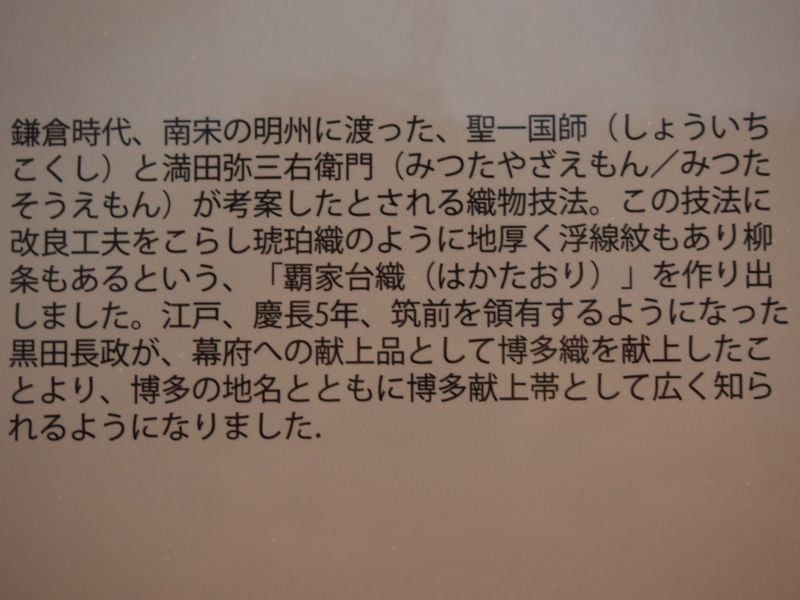 鎌倉時代、南宋の明州に渡った、聖一国師（しょういち
こくし）と満田弥三右衛門（みつたやざえもん／みつた
そうえもん）が考案したとされる織物技法。この技法に
改良工夫をこらし琥珀織のように地厚く浮線紋もあり柳
条もあるという、「覇家台織（はかたおり）」を作り出
しました。江戸、慶長5年、筑前を領有するようになった
黒田長政が、幕府への献上品として博多織を献上したこ
とより、博多の地名とともに博多献上帯として広く知ら
れるようになりました.